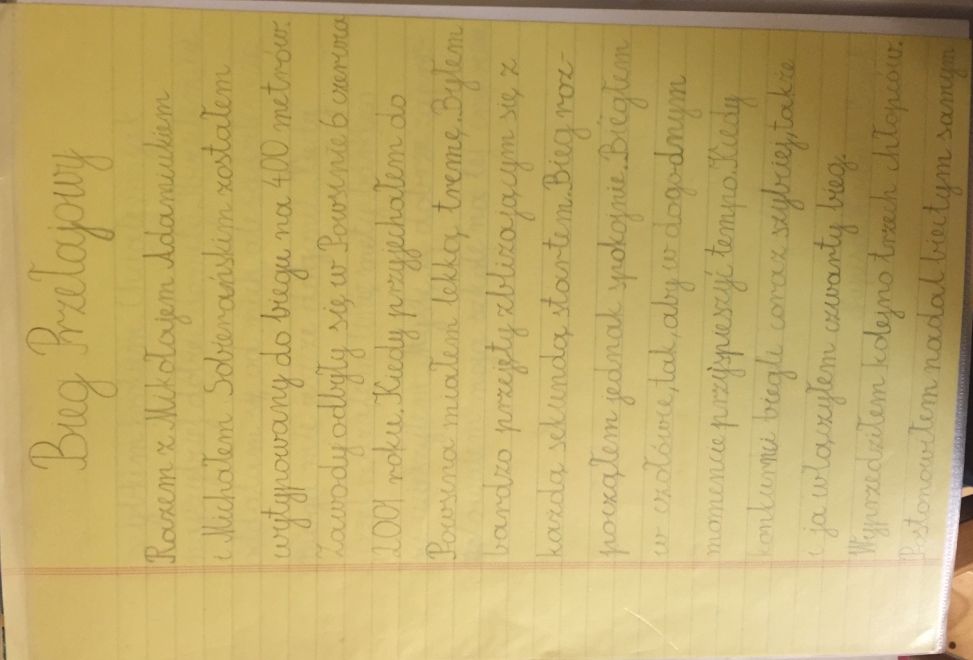 Bieg Przełajowy
Razem z Mikołajem Adamukiem
i Michałem Sobierańskim zostałem
wytypowany do biegu na 400 metrów.
Zawody odbyły się, w Powsinie 6 czerwca
2001 roku. Kiedy przyjechałem do
Powsina miałem lekką, tremę. Byłem
bardzo przejęty zbliżającym się, z
każdą, sekundą, startem. Bieg roz-
począłem jednak spokojnie. Biegłem
w czołówce, tak, aby w dogodnym
momencie przyśpieszyć tempo. Kiedy
konkurenci biegli coraz szybiej, także
i ja włączyłem czwarty bieg.
Wyprzedziłem kolejno trzech chłopców.
Postanowiłem nadal biec tym samym